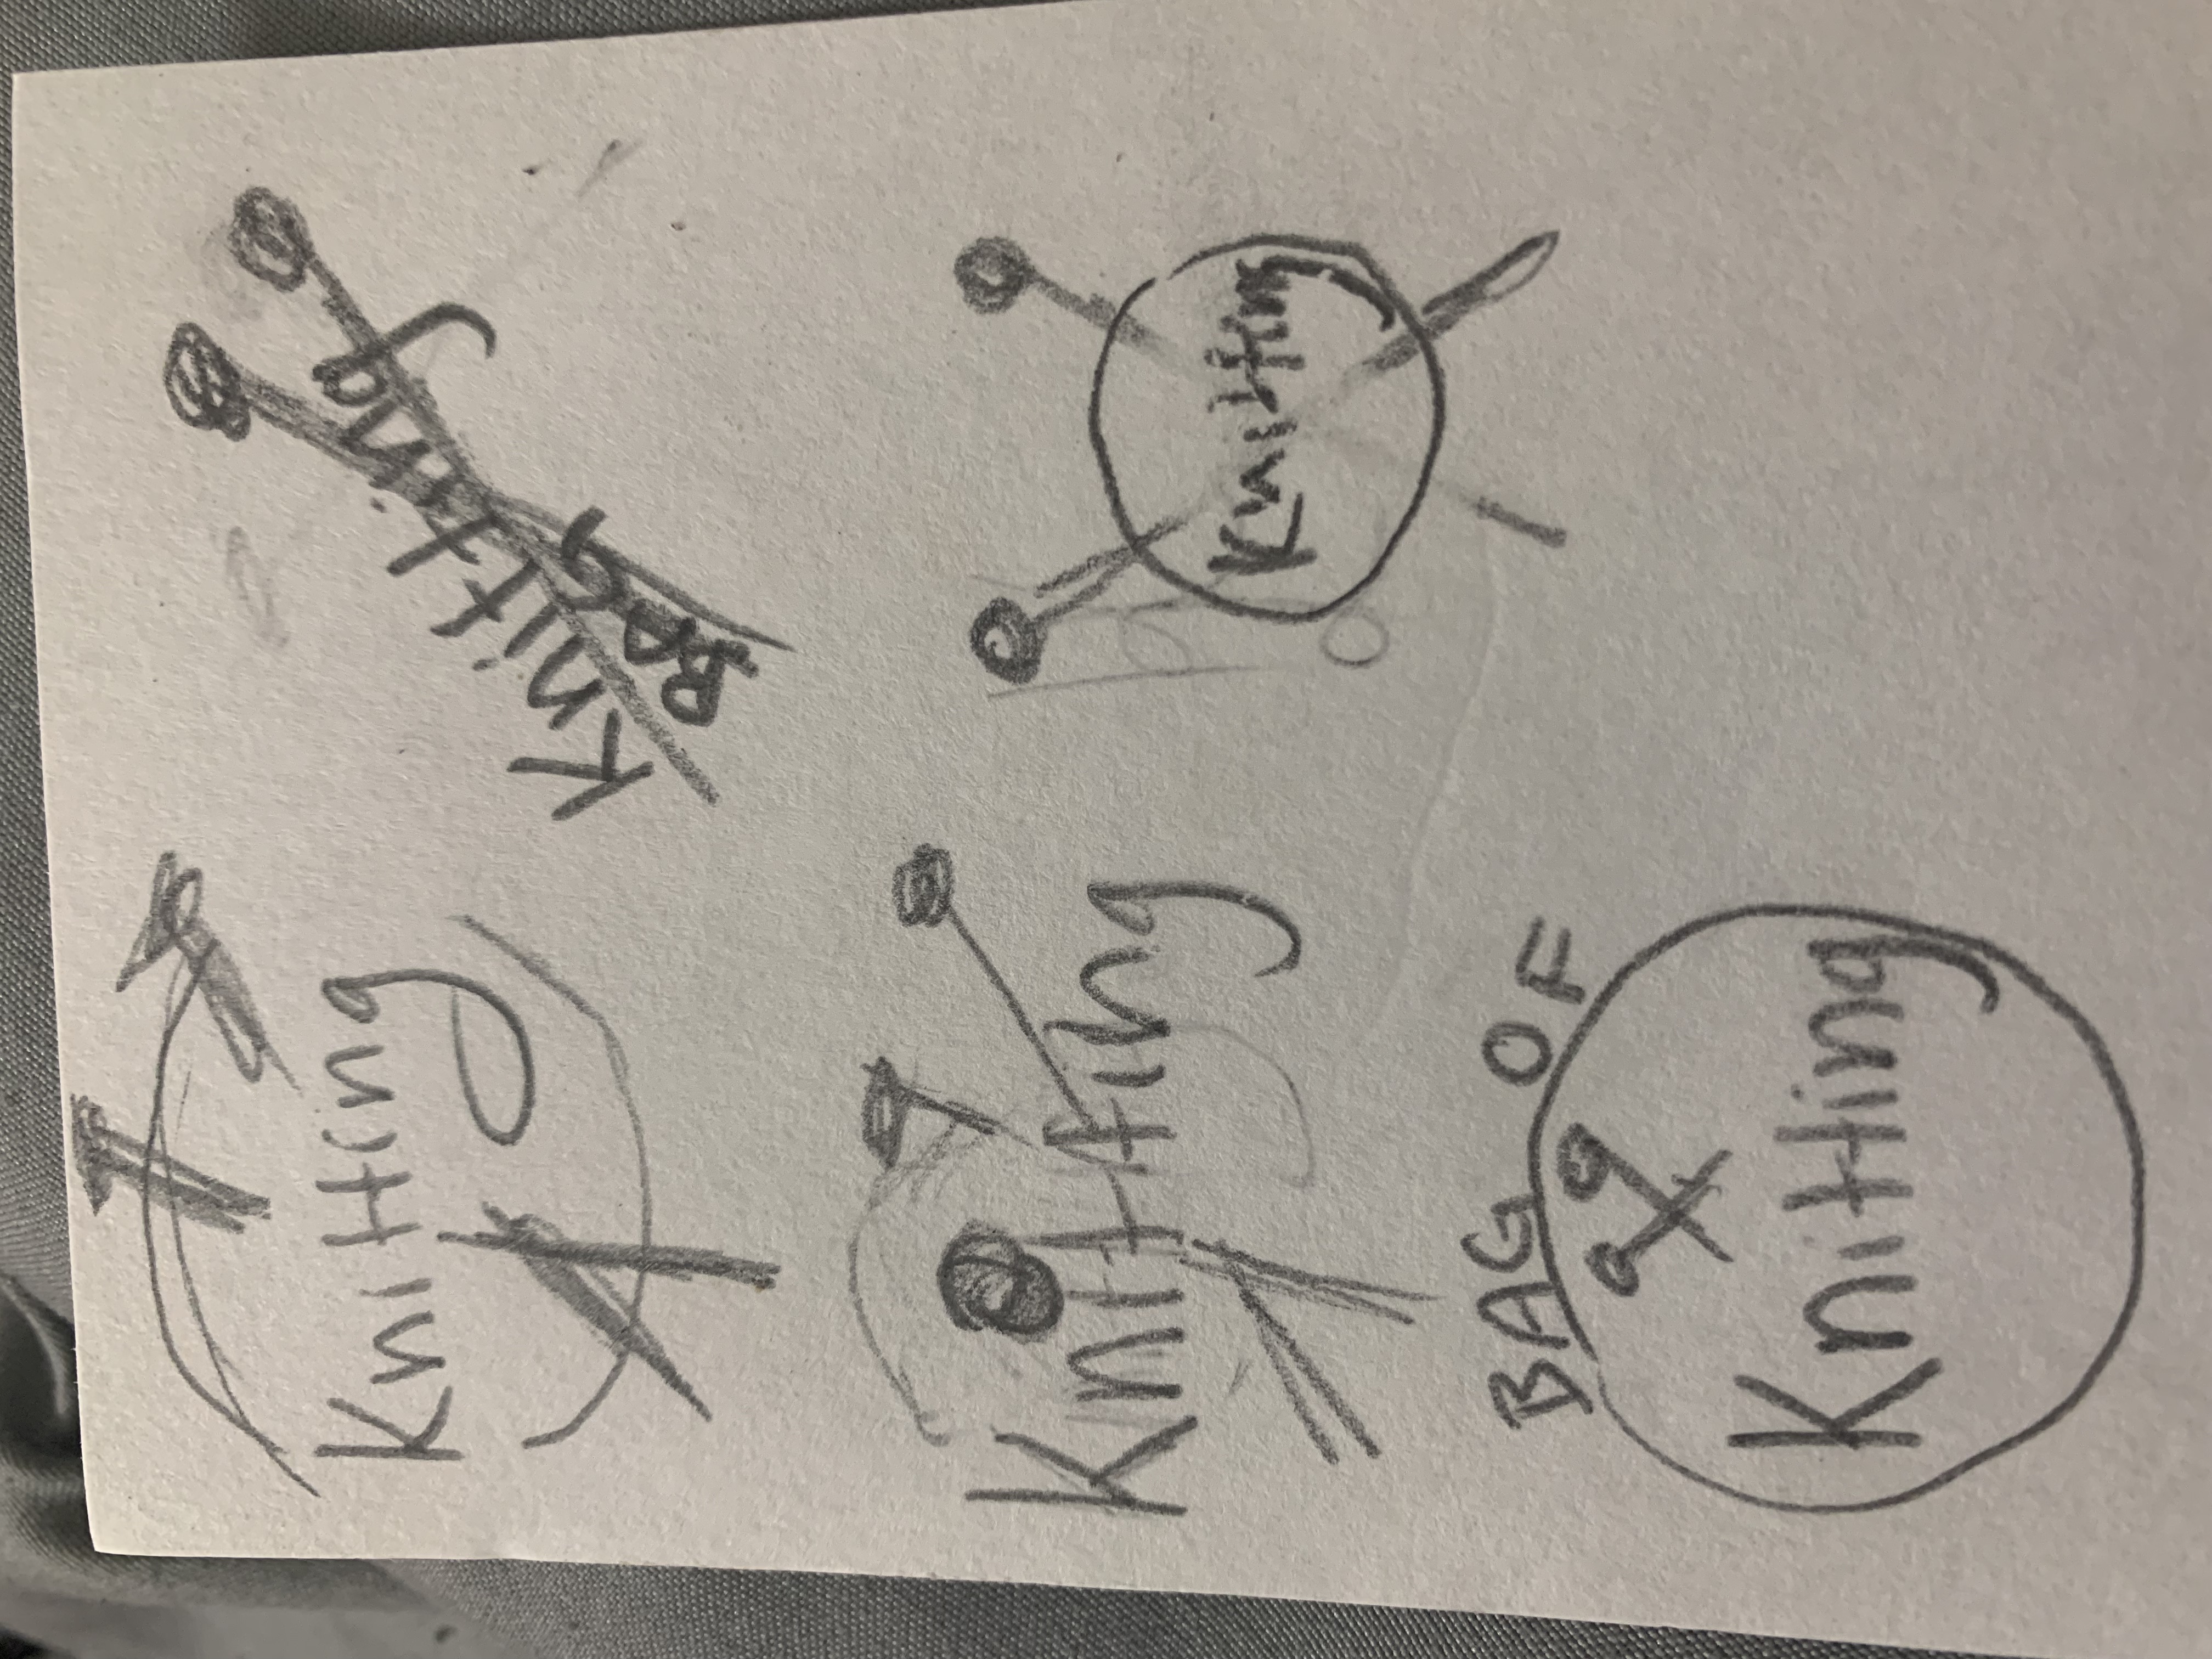 Knitting
Knitting
BAG
Knitting
Knitting
BAG OF
Knitting